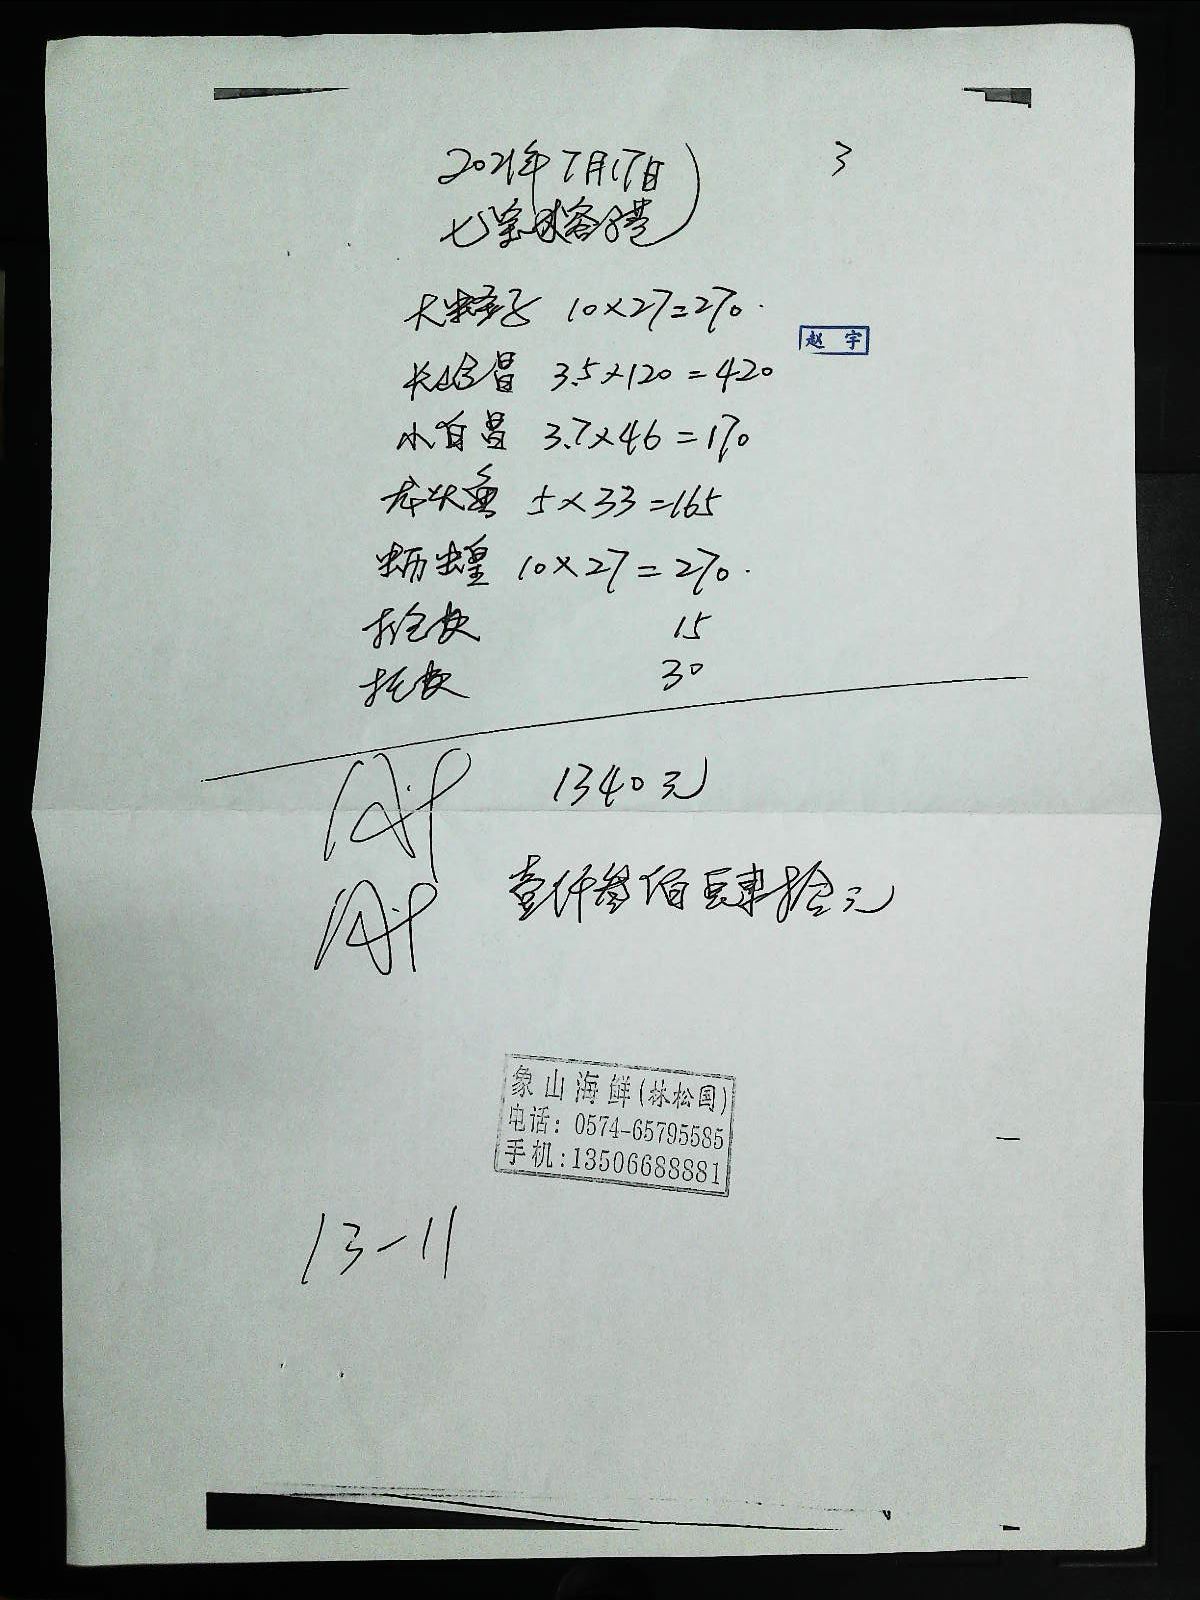 2021年7月17日
3
大蛏子 10×27=270.
赵宇
3.5×120=420
小白昌 3.7×46=170
龙头鱼 5×33=165
蛎蝗 10×27=270.
15
托费 30
1340元
壹仟叁佰肆拾元
象山海鲜(林松国)
电话: 0574-65795585
手机:13506688881
13-11